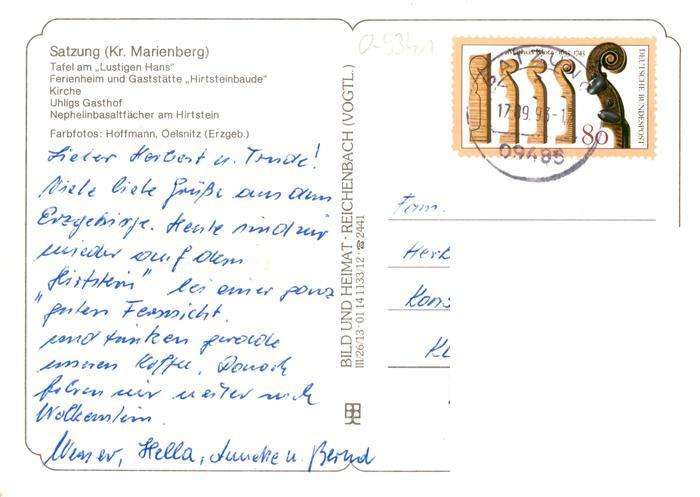 Satzung (Kr. Marienberg)
Tafel am „Lustigen Hans“
Ferienheim und Gaststätte „Hirtsteinbaude“
Kirche
Uhligs Gasthof
Nephelinbasaltfächer am Hirtstein
Farbfotos: Hoffmann, Oelsnitz (Erzgeb.)
Lieber Herbert u. Trude!
Viele liebe Grüße aus dem
Erzgebirge. Heute sind wir
wieder auf dem
"Hirtstein" bei einer ganz
guten Fernsicht
und trinken gerade
unseren Kaffee. Danach
fahren wir weiter nach
Wolkenstein.
Werner, Hella, Anneke u. Bernd
BILD UND HEIMAT · REICHENBACH (VOGTL.)
III/26/13 · 01 14 1133/12 · ☎ 2441
0-9341
1653-1743
DEUTSCHE BUNDESPOST
80
SATZUNG
17.09.93-1
09485
Fam.
Herb
Kons
Kl